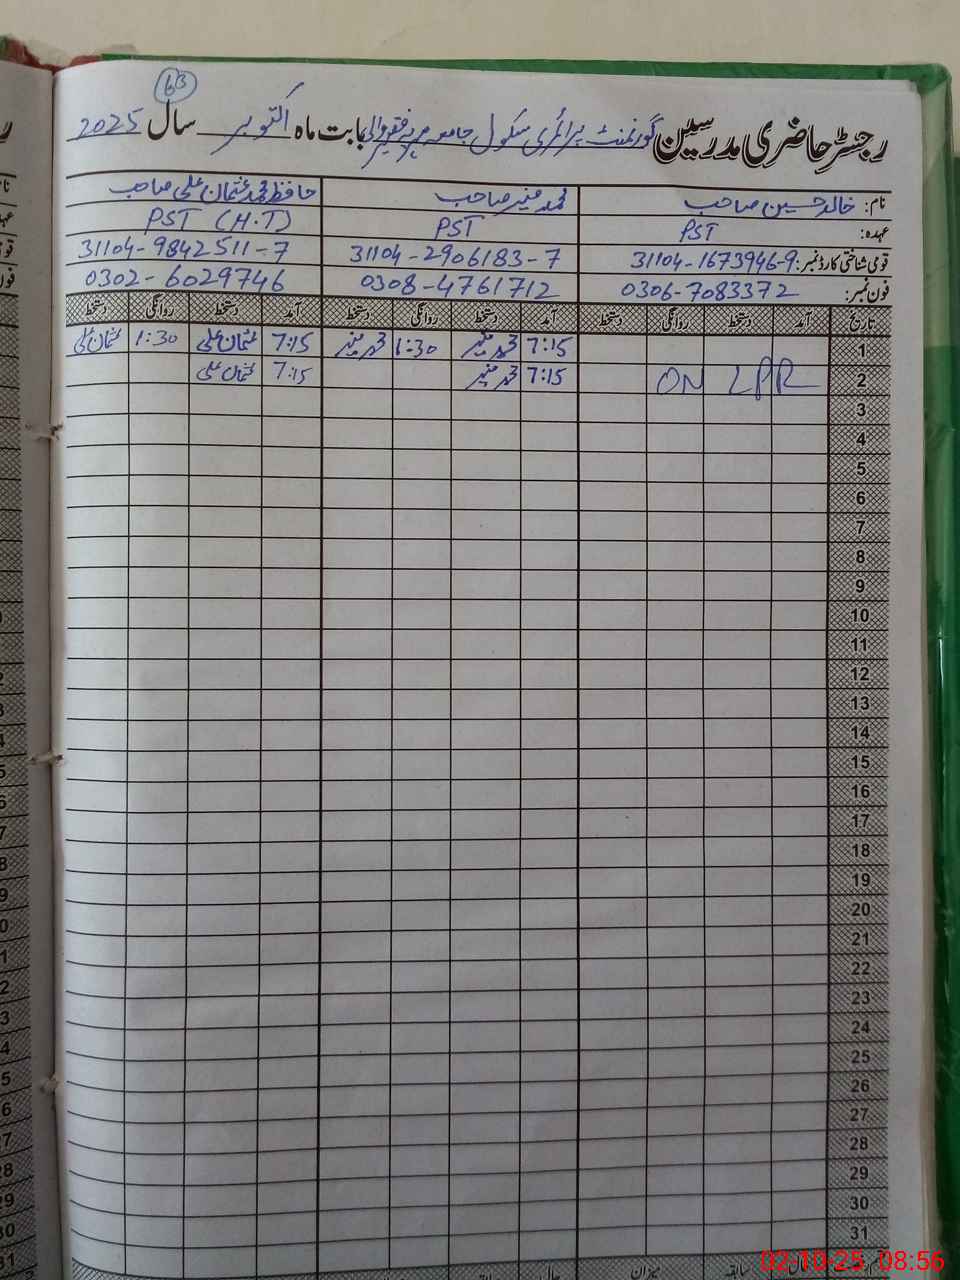 63
رجسٹر حاضری مدرسین گورنمنٹ پرائمری سکول بابت ماہ اکتوبر سال 2025
نام: خالد حسین صاحب محمد منیر صاحب حافظ محمد عثمان علی صاحب
عہدہ: PST PST PST (H.T)
قومی شناختی کارڈ نمبر: 31104-1673946-9 31104-2906183-7 31104-9842511-7
فون نمبر: 0306-7083372 0308-4761712 0302-6029746
تاریخ آمد دستخط روانگی دستخط آمد دستخط روانگی دستخط آمد دستخط روانگی دستخط
1 7:15 محمد منیر 1:30 محمد منیر 7:15 عثمان علی 1:30 عثمان علی
2 ON LPR 7:15 محمد منیر 7:15 عثمان علی
3
4
5
6
7
8
9
10
11
12
13
14
15
16
17
18
19
20
21
22
23
24
25
26
27
28
29
30
31
سابقہ میزان حال
02-10-25 08:56